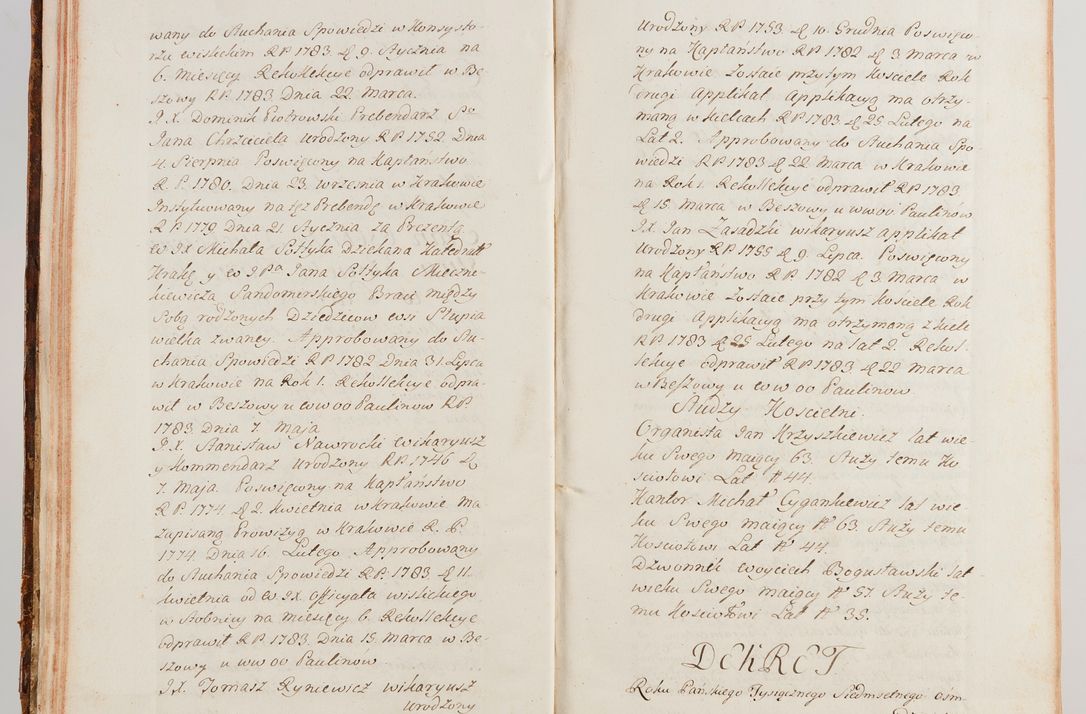 wany do Słuchania Spowiedzi w Konsysto-
rzu wislickim R.P. 1783. d. 9. Stycznia na
6. Miesięcy. Rekollekcye odprawił w Be-
szowy R.P. 1783. Dnia 22. Marca.
J.X. Dominik Piotrowski Prebendarz So
Jana Chrzciciela urodzony R.P. 1752. Dnia
4. Sierpnia Poswięcony na Kapłaństwo
R.P. 1780. Dnia 23. września w Krakowie
Instytuowany na tęż Prebendę w Krakowie
R.P. 1779. Dnia 21. Stycznia za Prezentą
W JX Michała Sołtyka Dziekana Katedral
Krakg. y W JPa Jana Sołtyka Mieczni-
kiewicza Sandomerskiego Braci między
Sobą rodzonych Dziedzicow wsi Słupia
wielka zwaney. Approbowany do Słu-
chania Spowiedzi R.P. 1782 Dnia 31. Lipca
w Krakowie na Rok 1. Rekollekcye odpra-
wił w Beszowy u WW OO Paulinow R.P.
1783. Dnia 7. Maja
J.X. Stanisław Nawrocki wikaryusz
y Kommendarz urodzony R.P. 1746 d.
7. Maja. Poswięcony na Kapłaństwo
R.P. 1774. d. 2. Kwietnia w Krakowie ma
zapisaną Prowizyą w Krakowie R.P.
1774. Dnia 16. Lutego. Approbowany
do Słuchania Spowiedzi R.P. 1783. d. 11.
kwietnia od W JX. Officyała wislickiego
w Stobnicy na miesięcy 6. Rekollekcye
odprawił R.P. 1783. Dnia 15. Marca w Be-
szowy u WW OO Paulinów
J.X. Tomasz Ryniewicz wikaryusz
urodzony
Urodzony R.P. 1753 d. 10. Grudnia Poswięco-
ny na Kapłaństwo R.P. 1782 d. 3. Marca w
Krakowie Zostaie przytym Kosciele Rok
drugi Applikat Applikacyą ma otrzy-
maną w Kielcach R.P. 1783 d. 25 Lutego na
Lat 2. Approbowany do Słuchania Spo-
wiedzi R.P. 1783 d. 22 Marca w Krakowie
na Rok 1. Rekollekcye odprawił R.P. 1783
d. 15. Marca w Beszowy u WW OO Paulinów
JX. Jan Zasadzki wikaryusz applikat
urodzony R.P. 1755 d. 9. Lipca. Poswięcony
na Kapłaństwo R.P. 1782 d. 3. Marca w
Krakowie Zostaie przy tym Kosciele Rok
drugi Applikacyą ma otrzymaną z Kielc
R.P. 1783 d. 25 Lutego na lat 2. Rekol-
lekcye odprawił R.P. 1783 d. 22 Marca
w Beszowy u WW OO Paulinow
Słudzy Koscielni.
Organista Jan Krzyszkiewicz lat wie-
ku Swego maiący 63. Służy temu Ko-
sciołowi Lat N 44.
Kantor Michał Cygankiewicz lat wie-
ku Swego maiący N 63 Służy temu
Kosciołowi Lat N 44.
Dzwonnik Woyciech Bogusławski lat
wieku Swego maiący N 57. Służy te-
mu Kosciołowi Lat N 35.
DEKRET.
Roku Pańskiego Tysiącznego Siedmsetnego Osm-